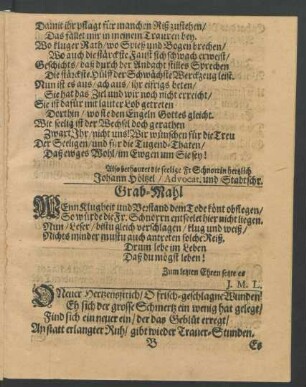 Damit ihr pflagt für manchen Riß zustehen/
Das fället mir in meinem Trauren bey.
Wo kluger Rath/ wo Spieß und Bogen brechen/
Wo auch die stärckste Faust sich schwach erweist/
Geschichts/ daß durch der Andacht stilles Sprechen
Die stärckste Hülff der Schwächste Werckzeug leist.
Nun ist es aus/ ach aus/ ihr eifrigs beten/
Sie hat das Ziel und wir noch nicht erreicht/
Sie ist dafür mit lauter Lob getreten
Dorthin/ wo sie den Engeln Gottes gleicht.
Wie seelig ist der Wechsel doch gerathen
Zwart Ihr/ nicht uns! Wir wünschen für die Treu
Der Seeligen/ und für die Tugend-Thaten/
Daß ewges Wohl/ im Ewgen um Sie sey!
Also betauret die seelige Fr. Schnorrin hertzlich
Johann Höltzel / Advocat, und Stadtschr.
Grab-Mahl
WEnn Klugheit und Verstand dem Tode könt obsiegen/
So würde die Fr. Schnorrn entseelet hier nicht liegen.
Nun/ Leser/ bistu gleich verschlagen/ klug und weiß/
Nichts minder mustu auch antreten solche Reiß.
Drum lebe im Leben
Daß du mögst leben!
Zum letzten Ehren setzte es
J. M. L.
O Neuer Hertzensstich/ O frisch-geschlagne Wunden!
Eh sich der grosse Schmertz ein wenig hat gelegt/
Find sich ein neuer ein/ der das Geblüt erregt/
An statt erlangter Ruh/ gibt wieder Trauer-Stunden.
B Es